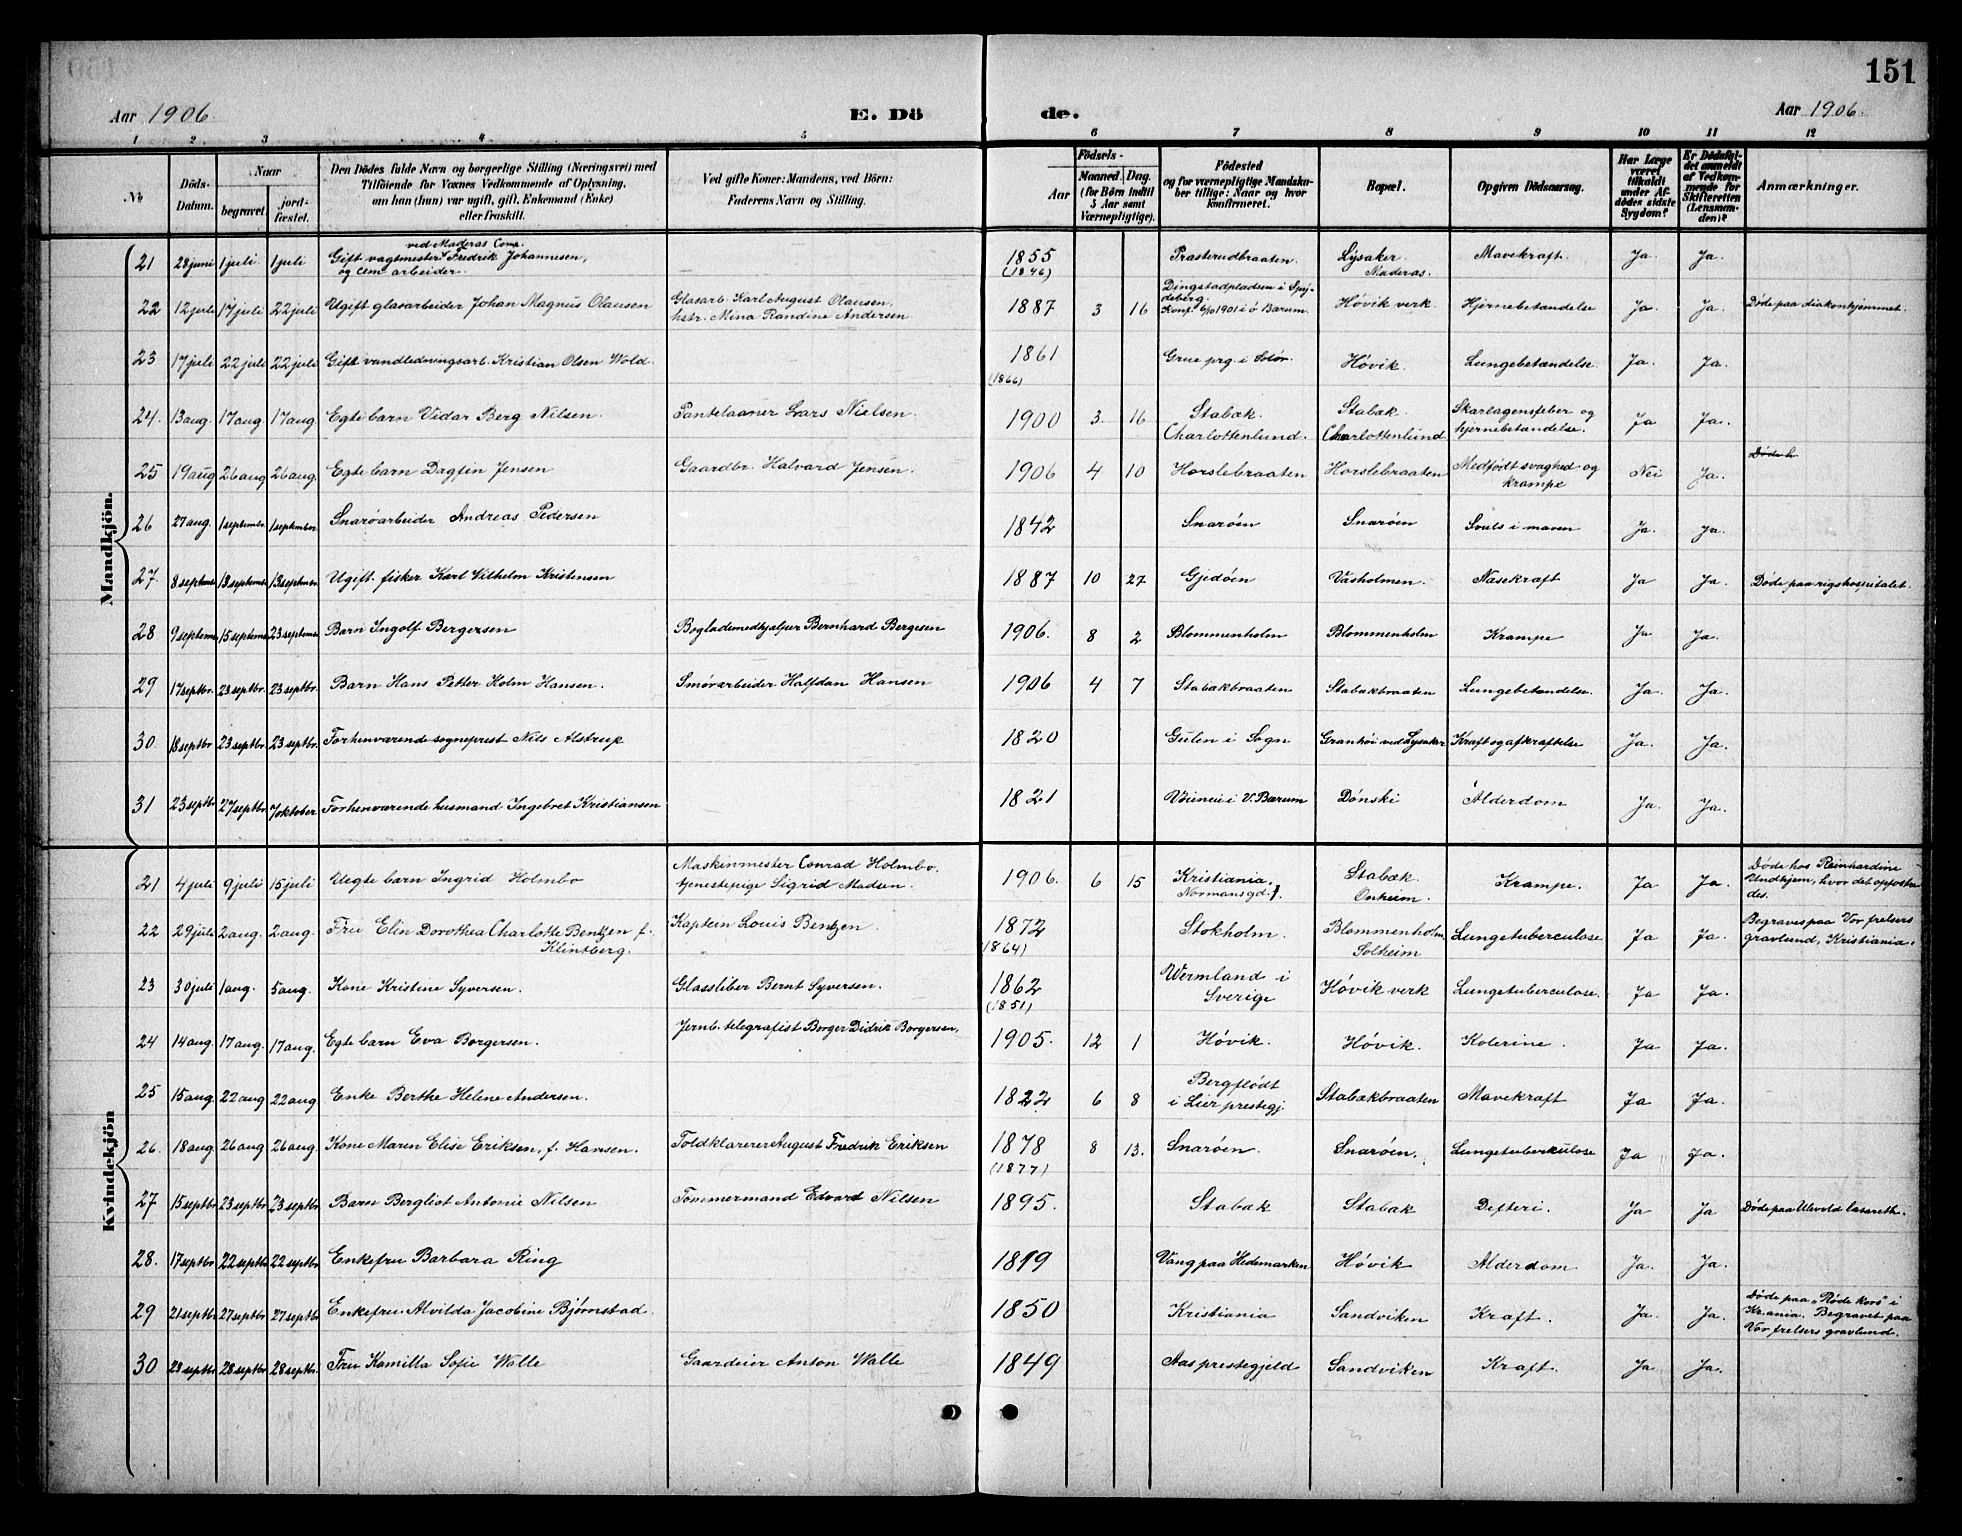 151
Aar 1906. E. Dö de. Aar 1906.
1 2 3 4 5 6 7 8 9 10 11 12
No
Döds-Datum.
Naar
begravet.
jord-fæstet.
Den Dödes fulde Navn og borgerlige Stilling (Næringsvei) med
Tilföiende for Voxnes Vedkommende af Oplysning,
om han (hun) var ugift, gift, Enkemand (Enke)
eller fraskilt.
Ved gifte Koner: Mandens, ved Börn:
Faderens Navn og Stilling.
Födsels-
Aar
Maaned. Dag.
(for Børn indtil
3 Aar samt
Værnepligtige).
Födested
og for værnepligtige Mandska-
ber tillige: Naar og hvor
konfirmeret.
Bopæl.
Opgiven Dödsaarsag.
Har Læge
været
tilkaldt
under Af-
dødes sidste
Sygdom?
Er Dödsfal-
det anmeldt
af Vedkom-
mende for
Skifteretten
(Lensman-
den)?
Anmærkninger.
Mandkjön.
21 28 juni 1 juli 1 juli Gift vagtmester ved Maderas Comp. Fredrik Johannesen, og cem. arbeider. 1855 (1846) Prasterudbraaten. Lysaker Maderas. Mavekraft. Ja. Ja.
22 12 juli 17 juli 22 juli Ugift glasarbeider Johan Magnus Olausen Glasarb. Karl August Olausen, hstr. Mina Randine Andersen 1887 3 16 Dingstadpladsen i Spydeberg. Konf. 6/10 1901 i ö Bærum. Høvik verk. Hjernebetændelse Ja. Ja. Døde paa diakonhjemmet.
23 17 juli 22 juli 22 juli Gift vandledningsarb. Kristian Olsen Wold. 1861 (1866) Grue prg. i Solör. Høvik. Lungebetændelse. Ja. Ja.
24. 13 aug. 17 aug 17 aug Egte barn Vidar Berg Nilsen. Pantelaaner Lars Nielsen. 1900 3 16 Stabæk. Charlottenlund. Stabæk. Charlottenlund Skarlagensfeber og hjernebetændelse. Ja Ja.
25 19 aug 26 aug 26 aug. Egte barn Dagfin Jensen Gaardbr. Halvard Jensen. 1906 4 10 Horslebraaten Horslebraaten Medfödt svaghed og krampe Nei Ja. Døde h
26 27 aug. 1 septembr. 1 septembr Snarøarbeider Andreas Pedersen 1842 Snarøen Snarøen Svuls i maven Ja. Ja.
27. 8 septembr 13 septembr 13 septembr. Ugift. fisker Karl Wilhelm Kristensen 1887 10 27 Gjedøen Vasholmen. Næsekraft Ja Ja. Døde paa rigshospitalet.
28 9 septembr 15 septembr 23 septembr Barn Ingolf Bergersen Bogladenmedhjælper Bernhard Bergesen 1906. 8 2 Blommenholm Blommenholm Krampe Ja Ja.
29 17 septbr. 23 septbr. 23 septbr. Barn Hans Petter Holm Hansen. Smörarbeider Halfdan Hansen 1906 4 7 Stabækbraaten Stabækbraaten Lungebetændelse. Ja. Ja.
30. 18 septbr. 23 septbr 23 septbr. Forhenværende sogneprest Nils Alstrup 1820 Gulen i Sogn Granhöi ved Lysaker Kraft og afkræftelse Ja. Ja.
31 23 septbr 27 septbr 7 oktober Forhenværende husmand Ingebret Kristiansen 1821 Vöienei i V. Bærum Dønski Alderdom Ja. Ja.
Kvindekjön
21 4 juli 9 juli 15 juli Uegte barn Ingrid Holmbo Maskinmester Conrad Holmbo, tjenestepige Sigrid Madsen. 1906. 6 15 Kristiania, Normansgd. 7. Stabæk. Onheim. Krampe. Ja Ja. Døde hos Reinhardine Undhjem, hvor det opfostredes.
22 29 juli 2 aug. 2 aug. Fru Elin Dorothea Charlotte Bentzen f. Klintberg. Kaptein Louis Bentzen. 1872 (1864) Stokholm. Blommenholm, Solheim Lungetuberculose Ja Ja. Begraves paa Vor frelsers gravlund, Kristiania.
23 30 juli 1 aug. 5 aug. Kone Kristine Syversen. Glassliber Bernt Syversen. 1862 (1851) Wermland i Sverige Høvik verk Lungetuberculose. Ja Ja.
24 14 aug. 17 aug. 17 aug. Egte barn Eva Borgersen. Jernb. telegrafist Borger Didrik Borgersen, 1905. 12 1 Høvik. Høvik. Kolerine. Ja Ja.
25 15 aug. 22 aug 22 aug. Enke Berthe Helene Andersen. 1822 6 8 Bergflödt i Lier prestegj. Stabækbraaten Mavekraft Ja Ja.
26. 18 aug. 26 aug 26 aug. Kone Maren Elise Eriksen, f. Hansen. Toldklarerer August Fredrik Eriksen 1878 (1877) 8 13. Snarøen. Snarøen. Lungetuberkulose Ja Ja.
27 15 septbr 23 septbr 23 septbr. Barn Bergliot Antonie Nilsen Tömmermand Edvard Nilsen 1895. Stabæk Stabæk Difteri. Ja Ja Døde paa Ulevold lasareth.
28. 17 septbr. 22 septbr 22 septbr. Enkefru Barbara Ring 1819 Vang paa Hedemarken Høvik Alderdom. Ja. Ja.
29 21 septbr. 27 septbr 27 septbr. Enkefru Alvilda Jacobine Bjørnstad. 1850 Kristiania Sandviken Kraft. Ja. Ja. Døde paa „Røde kors" i Kr.ania. Begravet paa Vor frelsers gravlund.
30 23 septbr 28 septbr 28 septbr. Fru Kamilla Sofie Walle Gaardeier Anton Walle 1849 Aas prestegjeld Sandviken Kraft. Ja Ja.